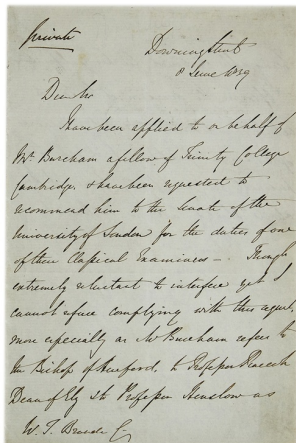 Private
Downing Street
8 June 1839
Dear Sir
I have been applied to on behalf of
Mr. Burcham a fellow of Trinity College
Cambridge, & have been requested to
recommend him to the Senate of the
University of London for the duties of one
of their Classical Examiners — Though
extremely reluctant to interfere yet I
cannot refuse complying with this request,
more especially as Mr Burcham refers to
the Bishop of Hereford, to Professor Peacock
Dean of Ely & to Professor Henslow as
W. T. Brande Esq